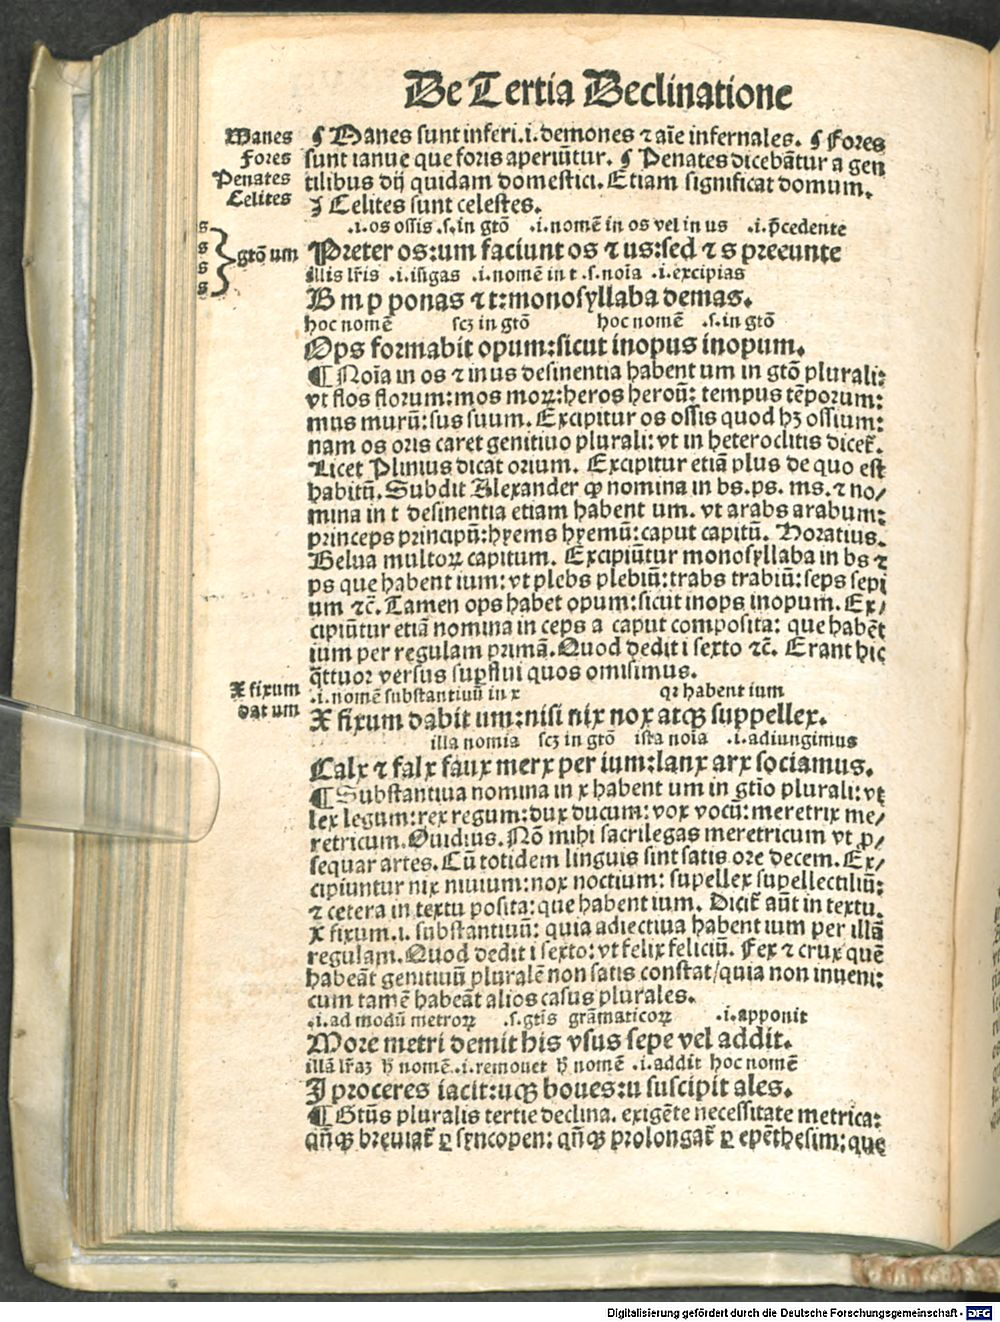 De Tertia Declinatione
Manes ¶ Manes sunt inferi .i. demones ⁊ aīe infernales. ¶ Fores
Fores sunt ianue que foris aperiūtur. ¶ Penates dicebātur a gen
Penates tilibus dij quidam domestici. Etiam significat domum.
Celites ¶ Celites sunt celestes.
.i. os ossis .s. in gtō .i. nomē in os vel in us .i. p̄cedente
s s s s gtō um Preter os:um faciunt os ⁊ us:sed ⁊ s preeunte
illis lr̄is .i. isigas .i. nomē in t .s. noīa .i. excipias
B m p ponas ⁊ t:monosyllaba demas.
hoc nomē scꝫ in gtō hoc nomē .s. in gtō
Ops formabit opum:sicut inopus inopum.
¶ Noīa in os ⁊ in us desinentia habent um in gtō plurali:
vt flos florum:mos moꝝ:heros heroū: tempus tēporum:
mus murū:sus suum. Excipitur os ossis quod hꝫ ossium:
nam os oris caret genitiuo plurali: vt in heteroclitis dicet̄.
Licet Plinius dicat orium. Excipitur etiā plus de quo est
habitū. Subdit Alexander ꝙ nomina in bs. ps. ms. ⁊ no/
mina in t desinentia etiam habent um. vt arabs arabum:
princeps principū:hyems hyemū:caput capitū. Horatius.
Belua multoꝝ capitum. Excipiūtur monosyllaba in bs ⁊
ps que habent ium: vt plebs plebiū:trabs trabiū:seps sepi
um ⁊c̄. Tamen ops habet opum:sicut inops inopum. Ex/
cipiūtur etiā nomina in ceps a caput composita: que habēt
ium per regulam primā. Quod dedit i sexto ⁊c̄. Erant hic
q̄ttuor versus suꝑflui quos omisimus.
X fixum .i. nomē substantiuū in x qꝛ habent ium
dat um X fixum dabit um:nisi nix nox atqꝫ suppellex.
illa nomia scꝫ in gtō ista noīa .i. adiungimus
Calx ⁊ falx faux merx per ium:lanx arx sociamus.
¶ Substantiua nomina in x habent um in gtīo plurali: vt
lex legum:rex regum:dux ducum: vox vocū: meretrix me/
retricum. Ouidius. Nō mihi sacrilegas meretricum vt ꝑ/
sequar artes. Cū totidem linguis sint satis ore decem. Ex/
cipiuntur nix niuium:nox noctium: supellex supellectiliū:
⁊ cetera in textu posita: que habent ium. Dicit̄ aūt in textu.
x fixum .i. substantiuū: quia adiectiua habent ium per illā
regulam. Quod dedit i sexto: vt felix feliciū. Fex ⁊ crux quē
habeāt genitiuū pluralē non satis constat/quia non inueni:
cum tamē habeāt alios casus plurales.
.i. ad modū metroꝝ .s. gtīs grāmaticoꝝ .i. apponit
More metri demit his vsus sepe vel addit.
illā lr̄aꝫ h̄ nomē .i. remouet h̄ nomē .i. addit hoc nomē
I proceres iacit:uqꝫ boues:u suscipit ales.
¶ Gtūs pluralis tertie declina. exigēte necessitate metrica:
qn̄qꝫ breuiat̄ ꝑ syncopen: qn̄qꝫ prolongat̄ ꝑ epēthesim: que
Digitalisierung gefördert durch die Deutsche Forschungsgemeinschaft - DFG